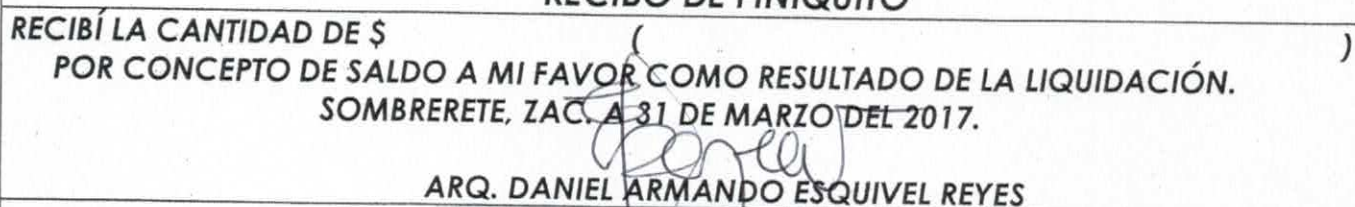 RECIBO DE FINIQUITO
RECIBÍ LA CANTIDAD DE $ ( )
POR CONCEPTO DE SALDO A MI FAVOR COMO RESULTADO DE LA LIQUIDACIÓN.
SOMBRERETE, ZAC. A 31 DE MARZO DEL 2017.
ARQ. DANIEL ARMANDO ESQUIVEL REYES